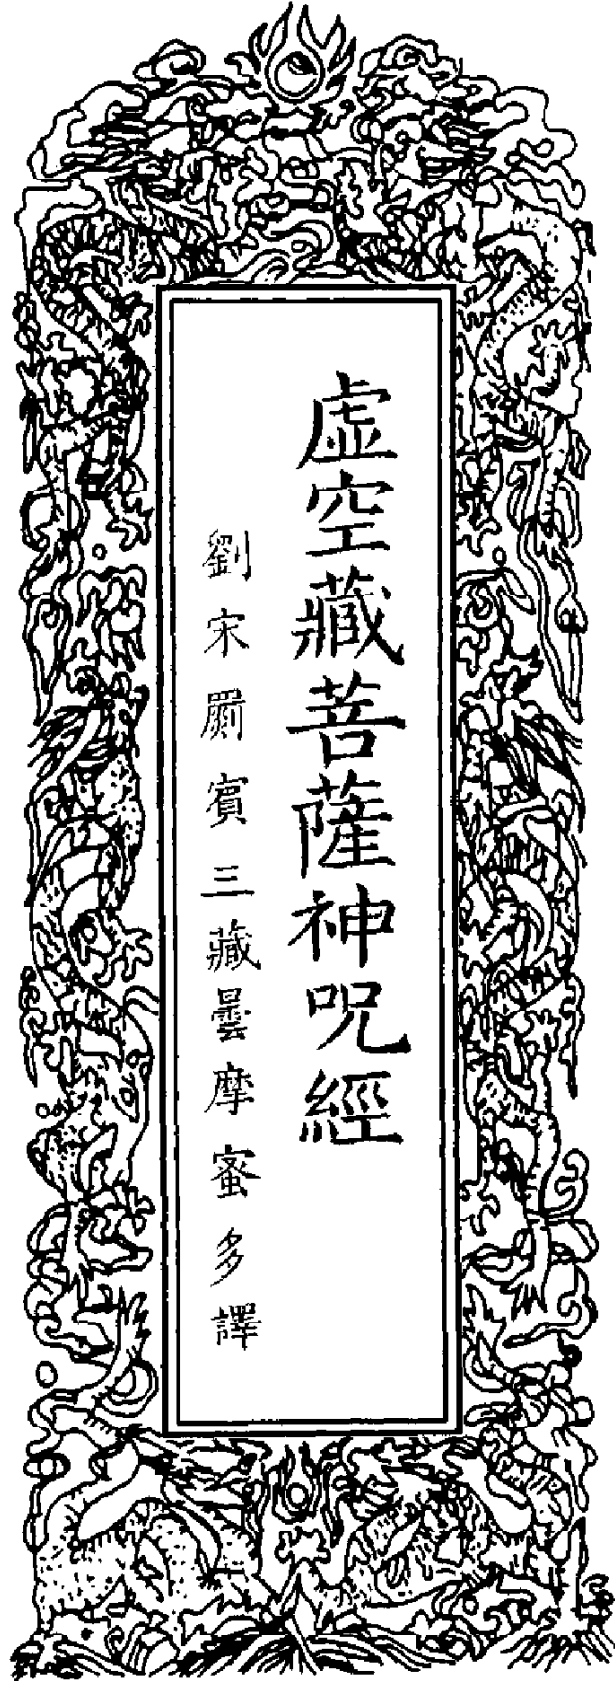 虛空藏菩薩神呪經
劉宋罽賓三藏曇摩蜜多譯